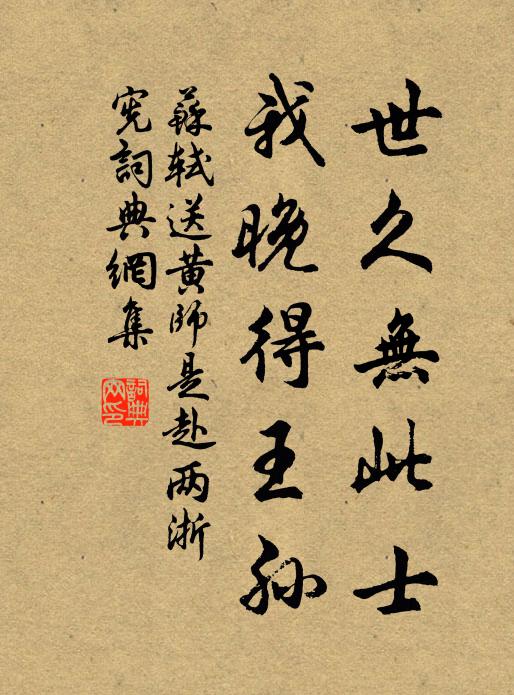 世久無此士
我晚得王孫
蘇軾送黃師是赴两浙
宪詞典網集
詞典